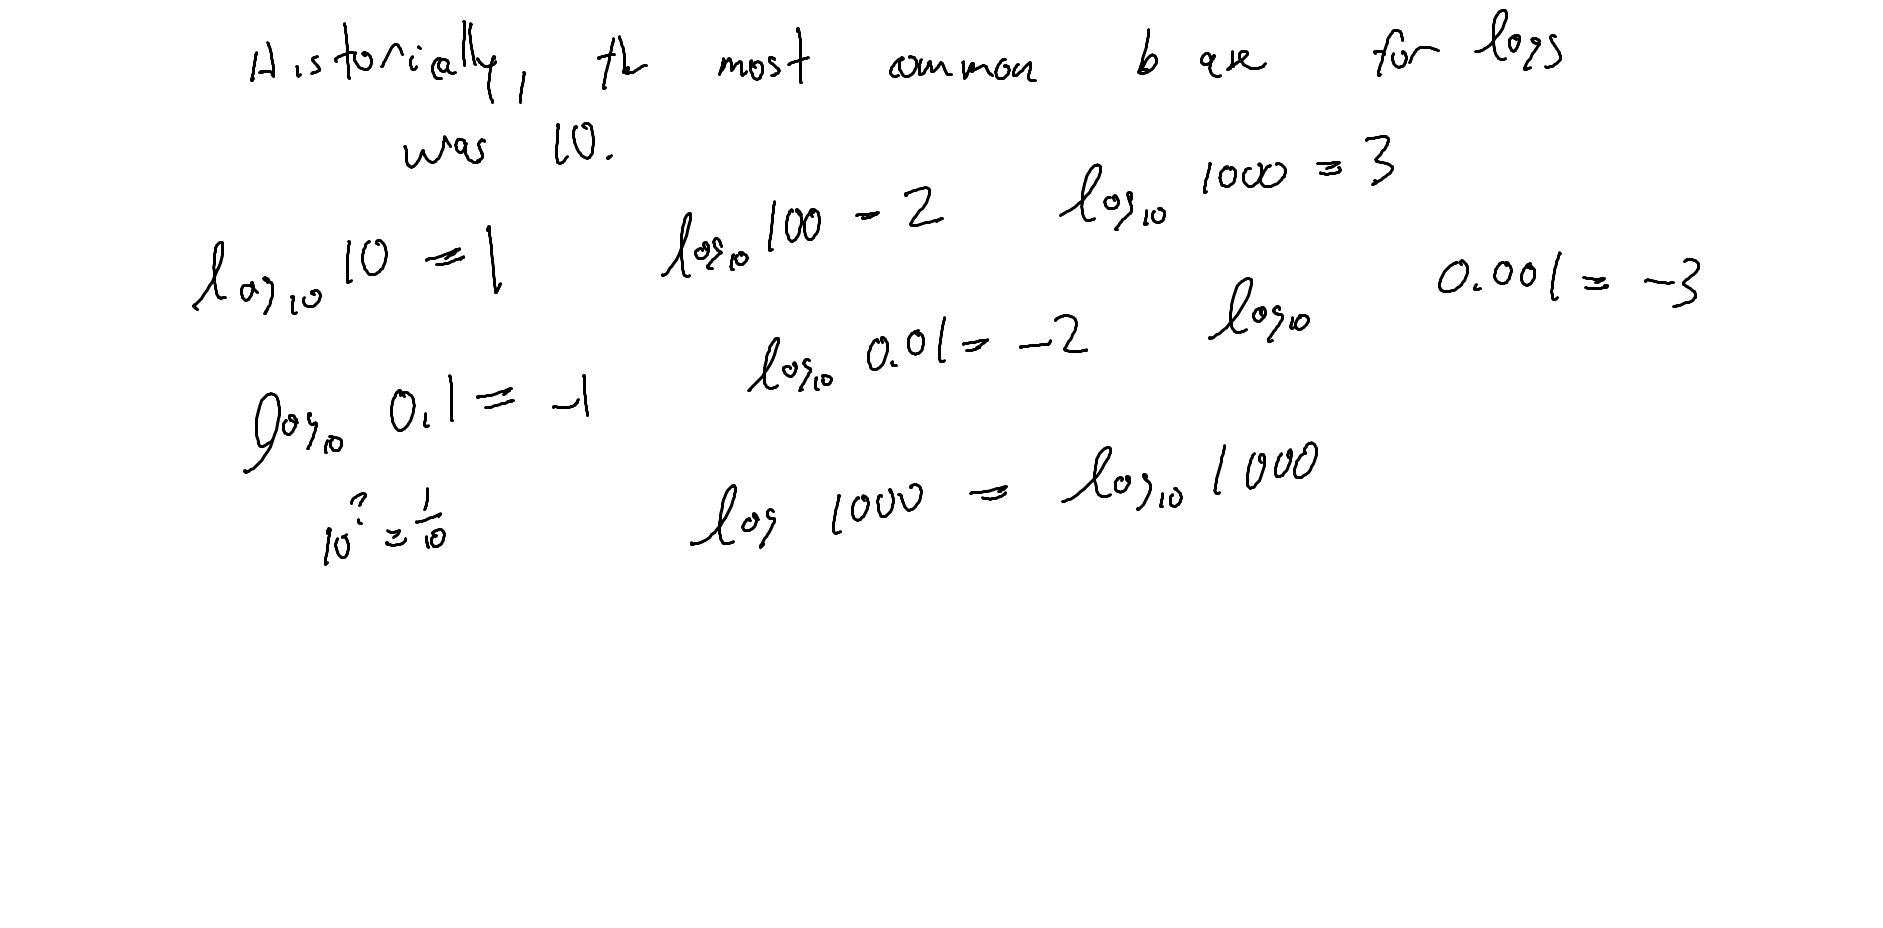 Historically, the most common base for logs
was 10.
log₁₀ 10 = 1 log₁₀ 100 = 2 log₁₀ 1000 = 3
log₁₀ 0.1 = -1 log₁₀ 0.01 = -2 log₁₀ 0.001 = -3
10^? = 1/10 log 1000 = log₁₀ 1000